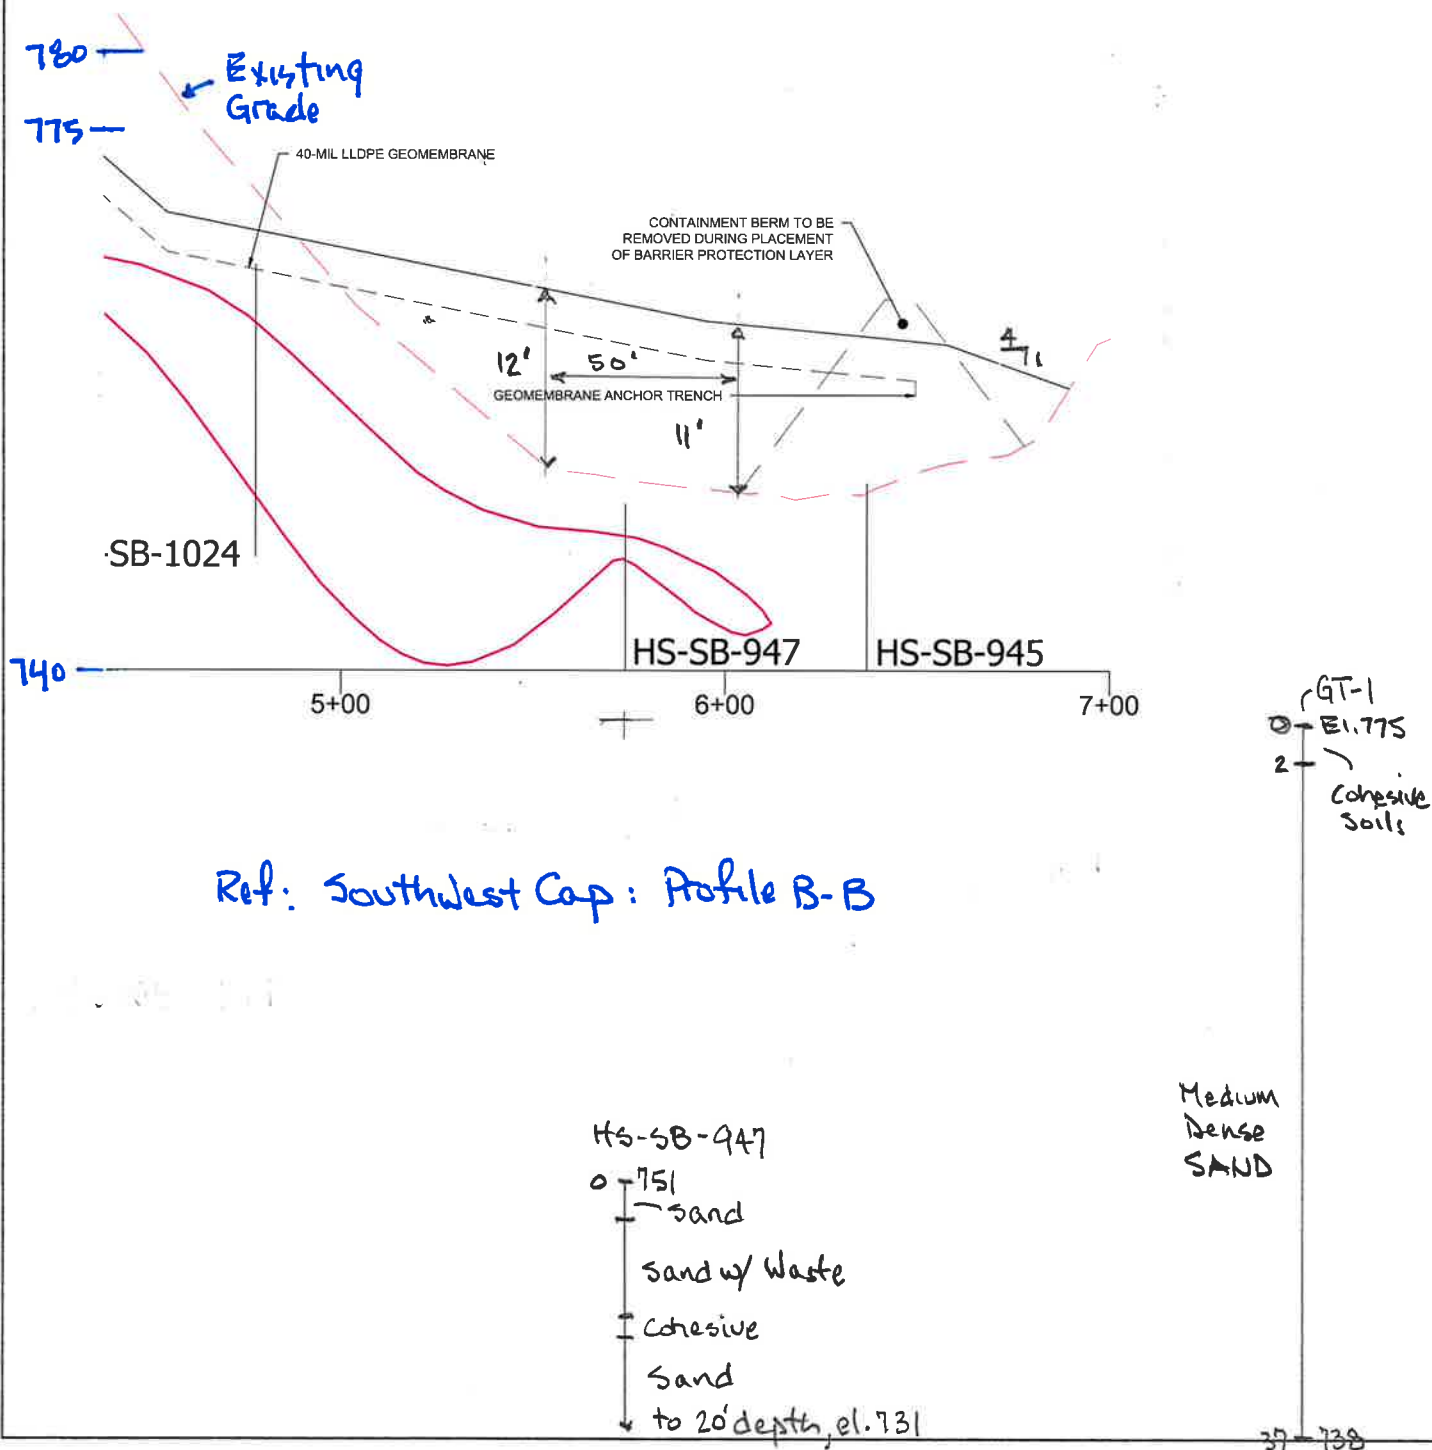 780
Existing
Grade
775
40-MIL LLDPE GEOMEMBRANE
CONTAINMENT BERM TO BE
REMOVED DURING PLACEMENT
OF BARRIER PROTECTION LAYER
4
1
12'
50'
GEOMEMBRANE ANCHOR TRENCH
11'
SB-1024
HS-SB-947
HS-SB-945
740
5+00
6+00
7+00
GT-1
0 El.775
2
Cohesive
Soils
Ref: Southwest Cap: Profile B-B
Medium
Dense
SAND
HS-SB-947
0 751
Sand
Sand w/ Waste
Cohesive
Sand
to 20' depth, el. 731
37 738